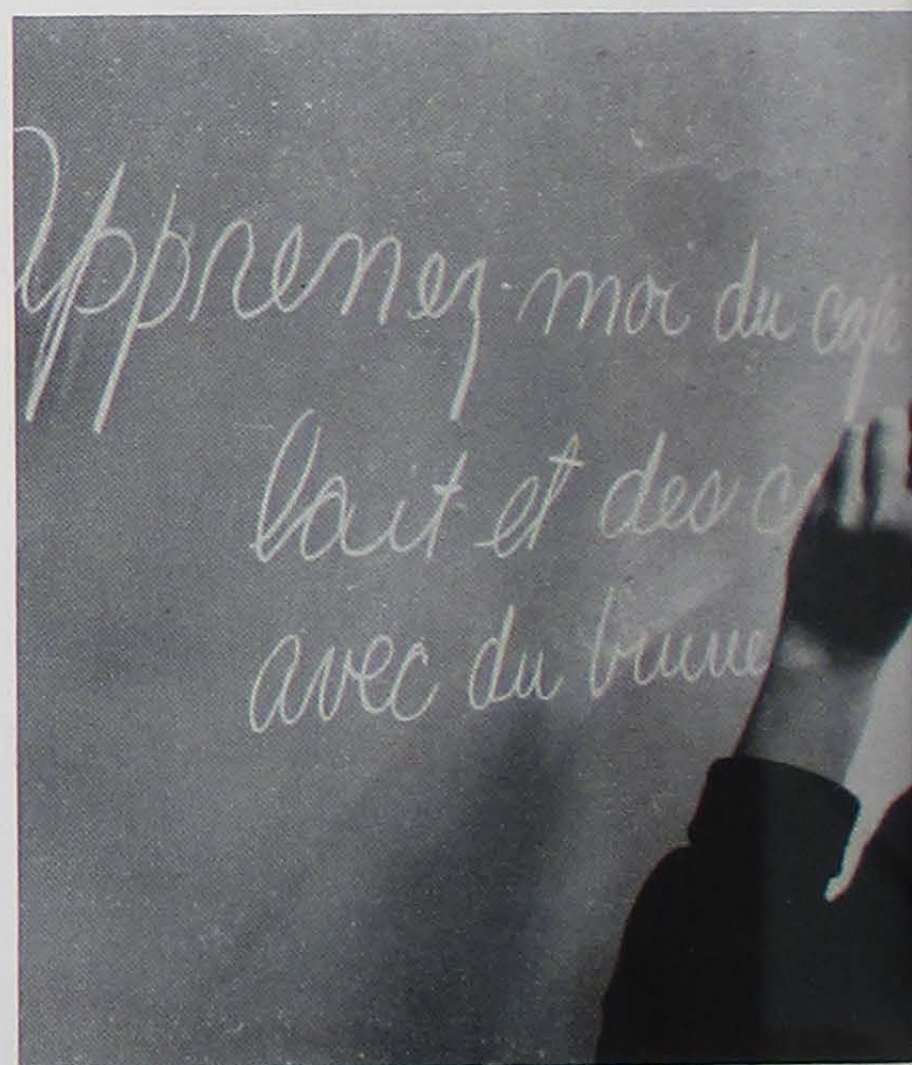 Apprenez-moi du caf
lait et des c
avec du